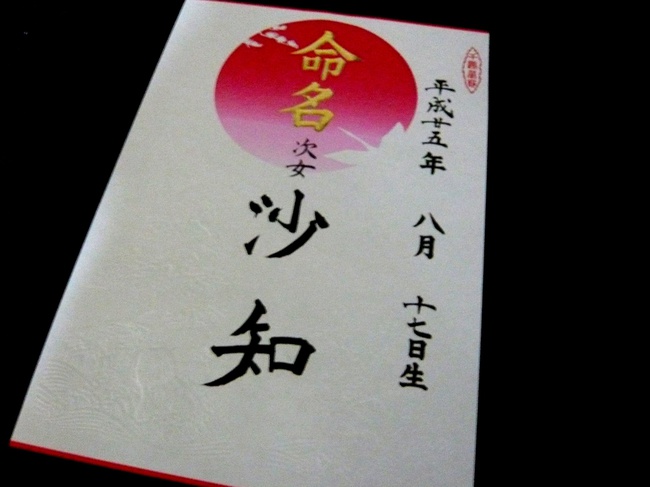 平成廿五年 八月 十七日生
命名
次女
沙知